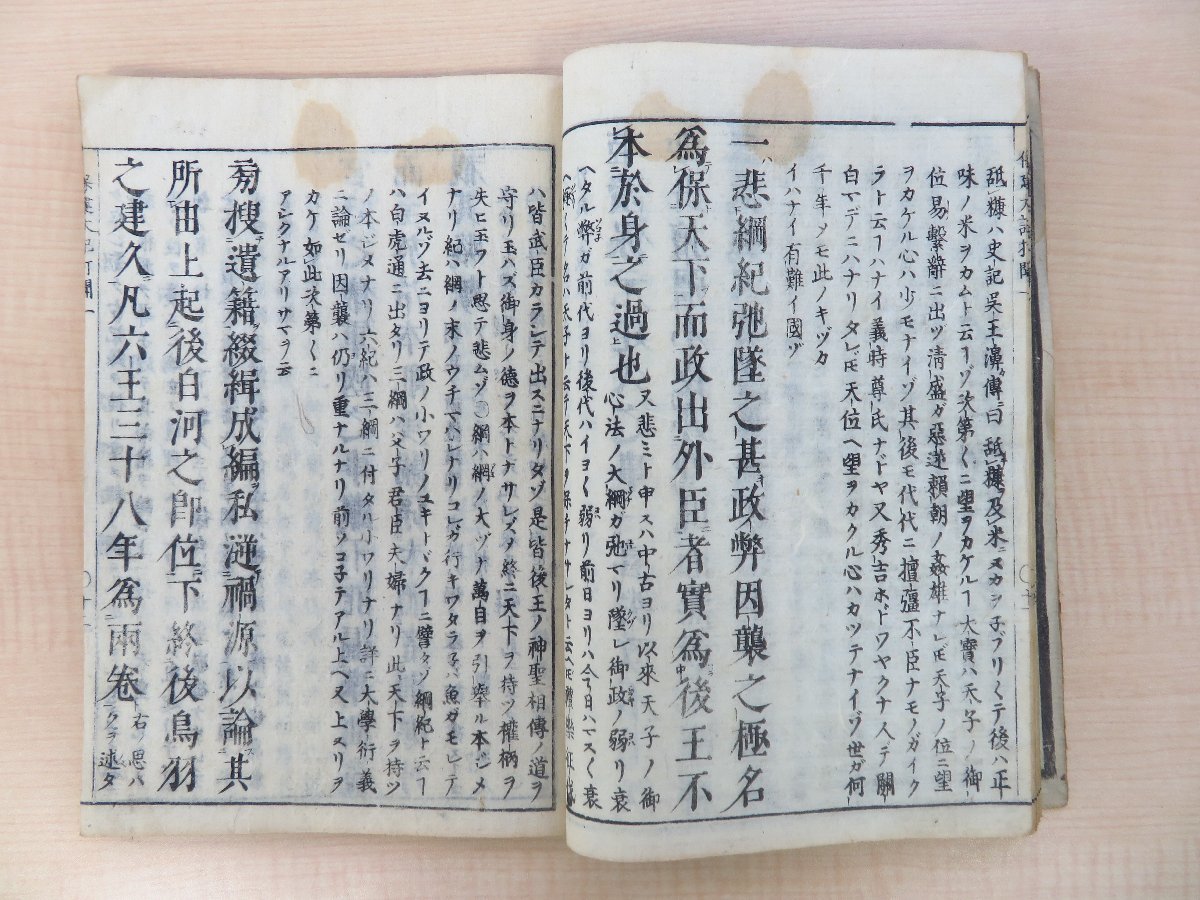 舐糠ハ史記呉王濞傳曰舐糠及米ヌカヲ子ブリ〱テ後ハ正
味ノ米ヲカムト云ヿゾ次第〱ニ望ヲカケルヿ大寶ハ天子ノ御
位易繋辭ニ出ツ清盛ガ惡逆頼朝ノ姦雄ナレ𪜈天子ノ位ニ望
ヲカケル心ハ少モナイゾ其後モ代代ニ擅彊不臣ナモノガイク
ラト云ヿハナイ義時尊氏ナドヤ又秀吉ホドワヤクナ人デ關
白マデニハナリタレ𪜈天位ヘ望ヲカクル心ハカツテナイゾ世ガ何
千年ソモ此ノキヅカ
イハナイ有難イ國ゾ
一悲綱紀弛墜之甚政弊因襲之極名
為保天下而政出外臣者實為後王不
本於身之過也又悲ミト申スハ中古ヨリ以來天子ノ御
心法ノ大綱ガ弛マリ墜レ御政ノ弱リ衰
ヘタル弊ガ前代ヨリ後代ハイヨ〱弱リ前日ヨリハ今日ハマス〱衰
ハ皆武臣カランテ出スニナリタゾ是皆後王ノ神聖相傳ノ道ヲ
守リ玉ハズ御身ノ德ヲ本トナサレズノ終ニ天下ヲ持ツ權柄ヲ
失ヒ玉フト思テ悲ムゾ〇綱ハ網ノ大ヅナ萬目ヲ引挙ル本ジメ
ナリ紀ハ網ノ末ノウチマヘナリコレガ行キワタラ子バ魚ガモレテ
イヌルゾ去ニヨリテ政ノ小ワリノユキトヾクヿニ譬ヘゾ綱紀ト云ヿ
ハ白虎通ニ出タリ三綱ハ父子君臣夫婦ナリ此天下ヲ持ツ
ノ本ジメナリ六紀ハ三綱ニ付タル小ワリナリ詳ニ大學衍義
ニ論ゼリ因襲ハ仍リ重ナルナリ前ソコ子テアル上ヘ又上ヌリヲ
カケ如此次第〱ニ
アシクナルアリサマヲ云
旁搜遺籍綴緝成編私遡禍源以論其
所由上起後白河之即位下終後鳥羽
之建久凡六王三十八年為兩卷右ノ思バ
クヲ述タ